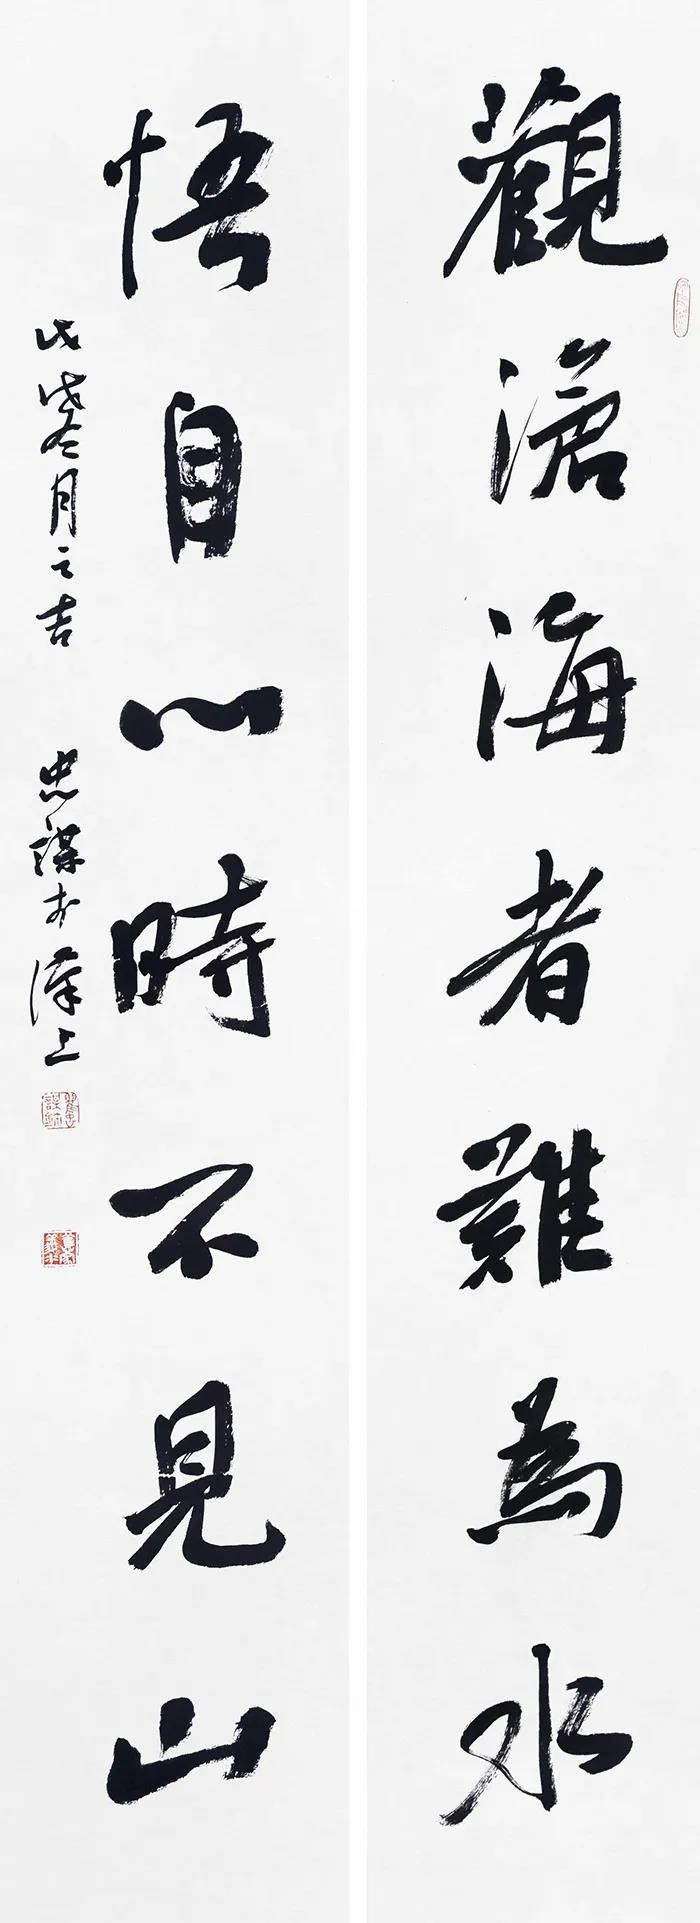 觀滄海者難為水
悟自心時不見山
戊戌冬月之吉
忠謀於漢上